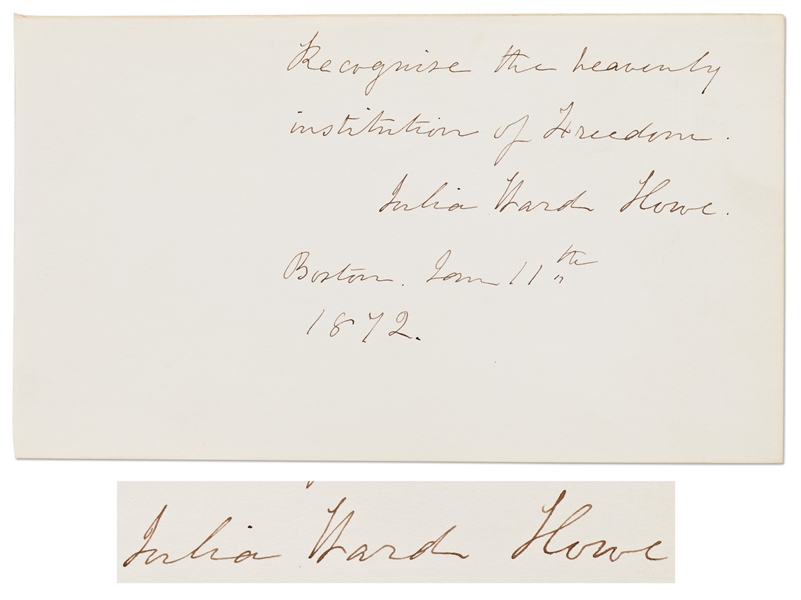 Recognise the heavenly
institution of Freedom.
Julia Ward Howe.
Boston. Jan 11th
1872.
Julia Ward Howe